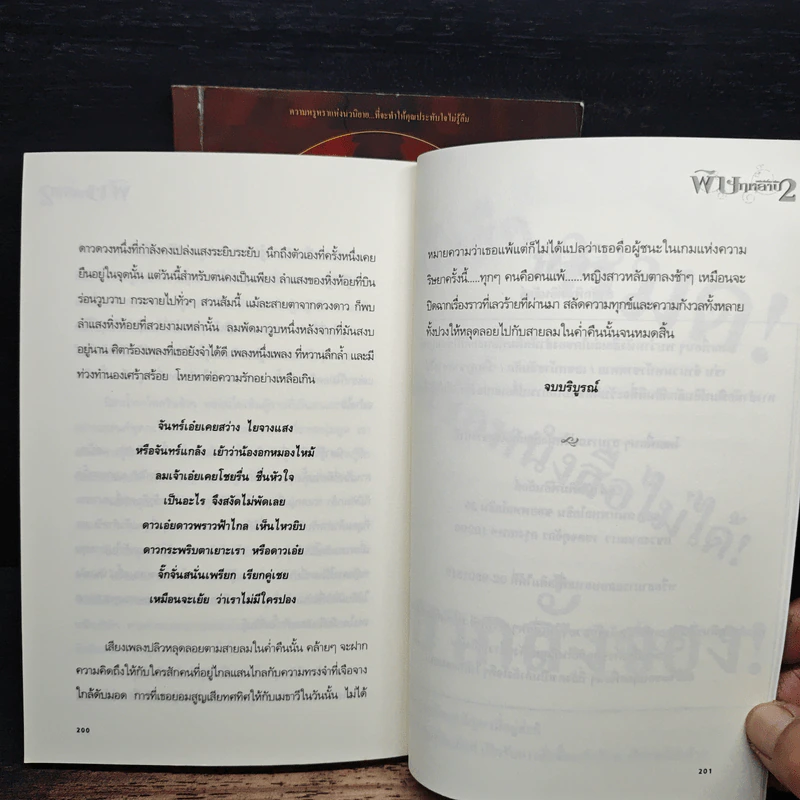 ความหรูหราแห่งนวนิยาย...ที่จะทำให้คุณประทับใจไม่รู้ลืม
ดาวดวงหนึ่งที่กำลังคงเปล่งแสงระยิบระยับ นึกถึงตัวเองที่ครั้งหนึ่งเคย
ยืนอยู่ในจุดนั้น แต่วันนี้สำหรับตนคงเป็นเพียง ลำแสงของหิ่งห้อยที่บิน
ร่อนวูบวาบ กระจายไปทั่วๆ สวนส้มนี้ แม้ละสายตาจากดวงดาว ก็พบ
ลำแสงหิ่งห้อยที่สวยงามเหล่านั้น ลมพัดมาวูบหนึ่งหลังจากที่มันสงบ
อยู่นาน คิตาร้องเพลงที่เธอยังจำได้ดี เพลงหนึ่งเพลง ที่หวานลึกล้ำ และมี
ท่วงทำนองเศร้าสร้อย โหยหาต่อความรักอย่างเหลือเกิน
จันทร์เอ๋ยเคยสว่าง ไยจางแสง
หรือจันทร์แกล้ง เย้าว่าน้องอกหมองไหม้
ลมเจ้าเอ๋ยเคยโชยรื่น ชื่นหัวใจ
เป็นอะไร จึงสงัดไม่พัดเลย
ดาวเอ๋ยดาวพราวฟ้าไกล เห็นไหวยิบ
ดาวกระพริบตาเยาะเรา หรือดาวเอ๋ย
จั๊กจั่นสนั่นเพรียก เรียกคู่เชย
เหมือนจะเย้ย ว่าเราไม่มีใครปอง
เสียงเพลงปลิวหลุดลอยตามสายลมในค่ำคืนนั้น คล้ายๆ จะฝาก
ความคิดถึงให้กับใครสักคนที่อยู่ไกลแสนไกลกับความทรงจำที่เจือจาง
ใกล้ดับมอด การที่เธอยอมสูญเสียทศทิศให้กับเมธาวีในวันนั้น ไม่ได้
200
2
หมายความว่าเธอแพ้แต่ก็ไม่ได้แปลว่าเธอคือผู้ชนะในเกมแห่งความ
ริษยาครั้งนี้.....ทุกๆ คนคือคนแพ้......หญิงสาวหลับตาลงช้าๆ เหมือนจะ
ปิดฉากเรื่องราวที่เลวร้ายที่ผ่านมา สลัดความทุกข์และความกังวลทั้งหลาย
ทั้งปวงให้หลุดลอยไปกับสายลมในค่ำคืนนั้นจนหมดสิ้น
จบบริบูรณ์
201